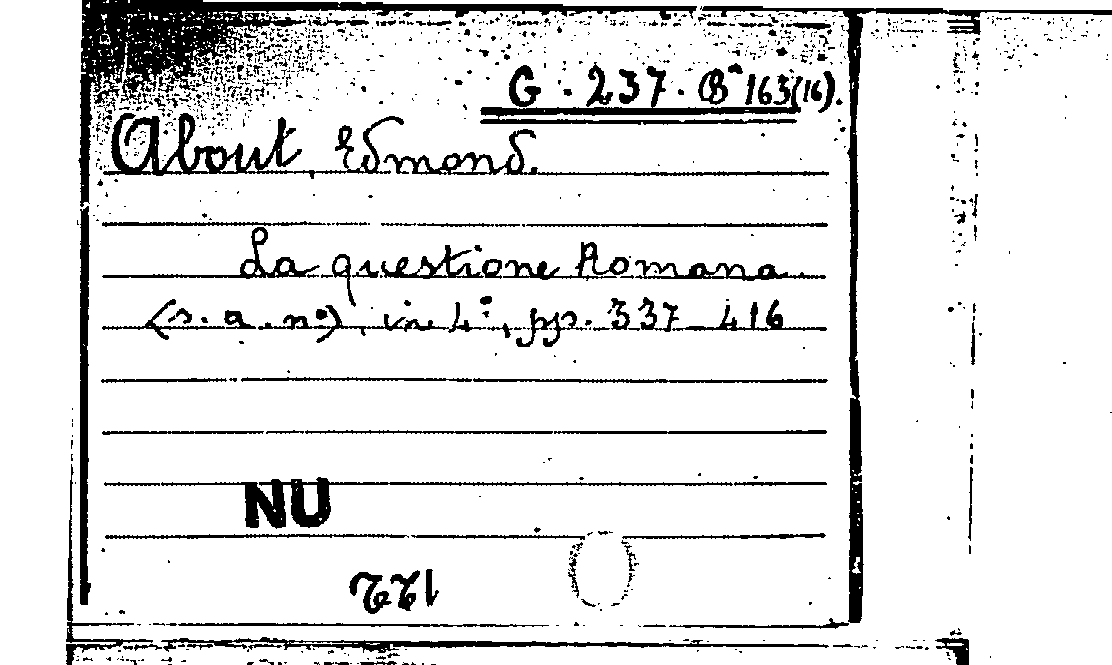 G. 237. Bª 163(16).
About, Edmond.
La questione Romana
(s. a. nº), in 4º, pp. 337_416
NU